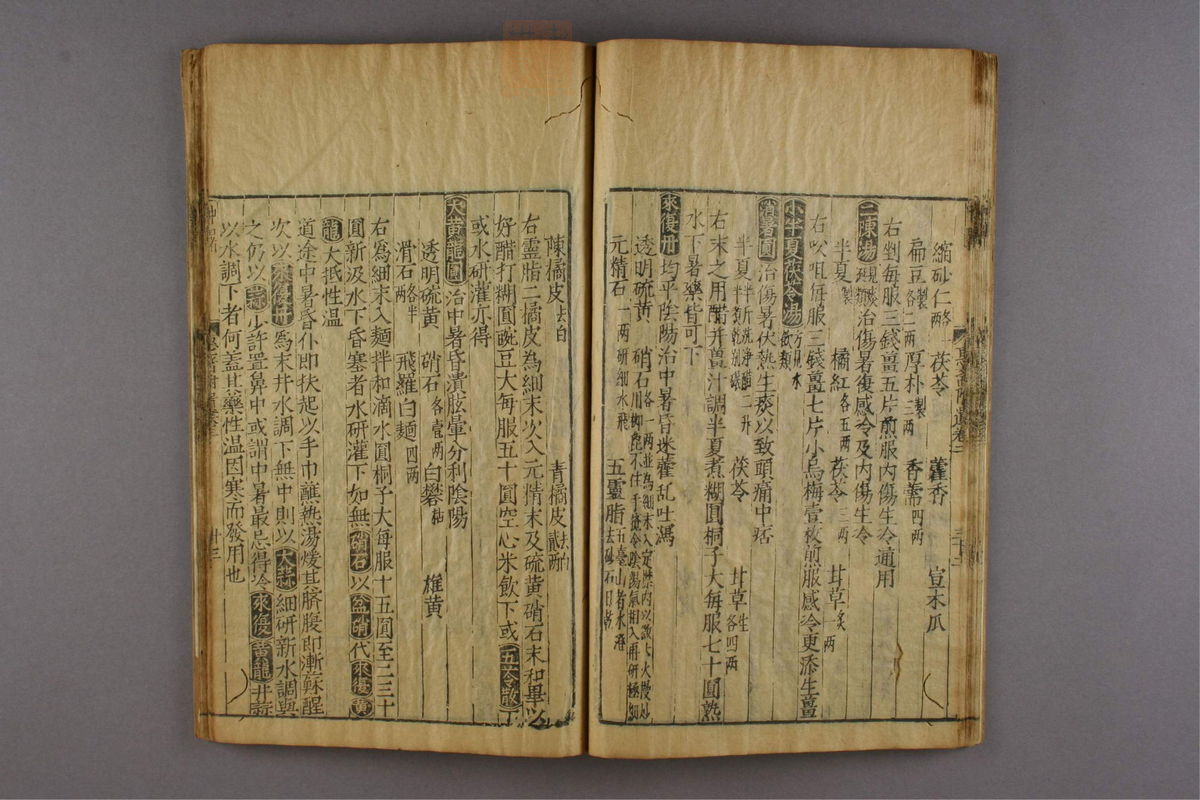 縮砂仁畧 各一兩 茯苓 藿香 宣木瓜
扁豆製 各二兩 厚朴製 二三兩 香薷四兩
右剉每服三錢薑五片煎服內傷生冷通用
二陳湯 治傷暑復感冷及內傷生冷
半夏製 橘紅各五兩 茯苓三兩 甘草炙一兩
右㕮咀每服三錢薑七片小烏梅壹枚煎服感冷更添生薑
小半夏茯苓湯方見水飲類
消暑圓 治傷暑伏熱生痰以致頭痛中痞
半夏半斤洗淨醋二升煮乾別碾 茯苓 甘草生各四兩
右末之用醋并薑汁調半夏煮糊圓桐子大每服七十圓熟
水下暑藥皆可下
來復丹 均平陰陽治中暑昏迷藿乱吐瀉
透明硫黄 硝石各一兩並為細末入定楪內以微火慢炒用柳篦不住手攪令陰陽氣相入再研極細
元精石一兩研細水飛 五靈脂五臺山者水澄去砂石日乾
陳橘皮去白 青橘皮去白貳兩
右靈脂二橘皮為細末次入元精末及硫黄硝石末和畢以
好醋打糊圓豌豆大每服五十圓空心米飲下或五苓散下
或水研灌亦得
大黄龍圓 治中暑昏潰眩暈分利陰陽
透明硫黄 硝石各壹兩 白礬枯 雄黄
滑石各半兩 飛羅白麵四兩
右為細末入麵拌和滴水圓桐子大每服十五圓至二三十
圓新汲水下昏塞者水研灌下如無硝石以盆硝代來復黄
龍大抵性温
道途中暑昏仆即扶起以手巾蘸熱湯煖其臍腹即漸蘇醒
次以來復丹為末井水調下無中則以大蒜細研新水調與
之仍以蒜少許置鼻中或謂中暑最忌得冷來復黄龍井
以水調下者何盖其藥性温因寒而發用也
十三